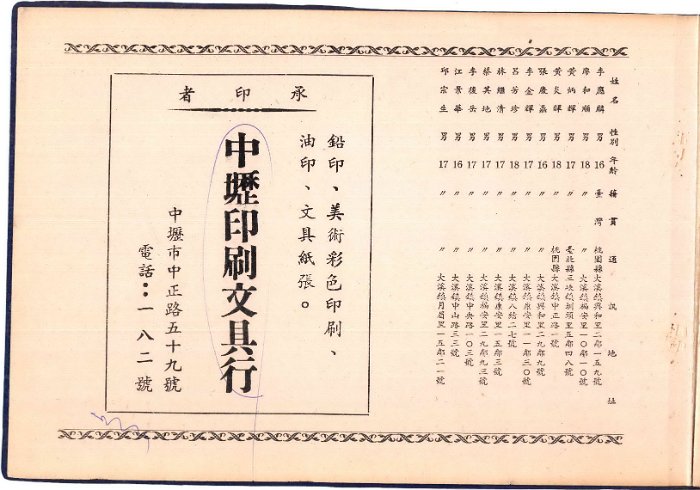 姓名 性別 年齡 籍貫 通訊地址
李應麟 男 16 臺灣 桃園縣大溪鎮興和里二鄰一五九號
廖和順 男 18 〃 〃 大溪鎮福安里一〇鄰一〇號
黃炳輝 男 17 〃 臺北縣三峽鎮圳頭里五鄰四八號
黃炎輝 男 18 〃 桃園縣大溪鎮中正路一號
張慶嘉 男 16 〃 〃 大溪鎮興和里二九鄰九號
李金輝 男 17 〃 〃 大溪鎮康安里一一鄰三〇號
呂芳珍 男 18 〃 〃 大溪鎮八結二七號
林繼清 男 17 〃 〃 大溪鎮康安里一五鄰三號
蔡其地 男 17 〃 〃 大溪鎮福安里二九鄰九三號
李後岳 男 17 〃 〃 大溪鎮中央路一〇三號
江景華 男 16 〃 〃 大溪鎮中山路三三號
邱宗生 男 17 〃 〃 大溪鎮月眉里一五鄰二一號
承印者
鉛印、美術彩色印刷、
油印、文具紙張。
中壢印刷文具行
中壢市中正路五十九號
電話：一八二號